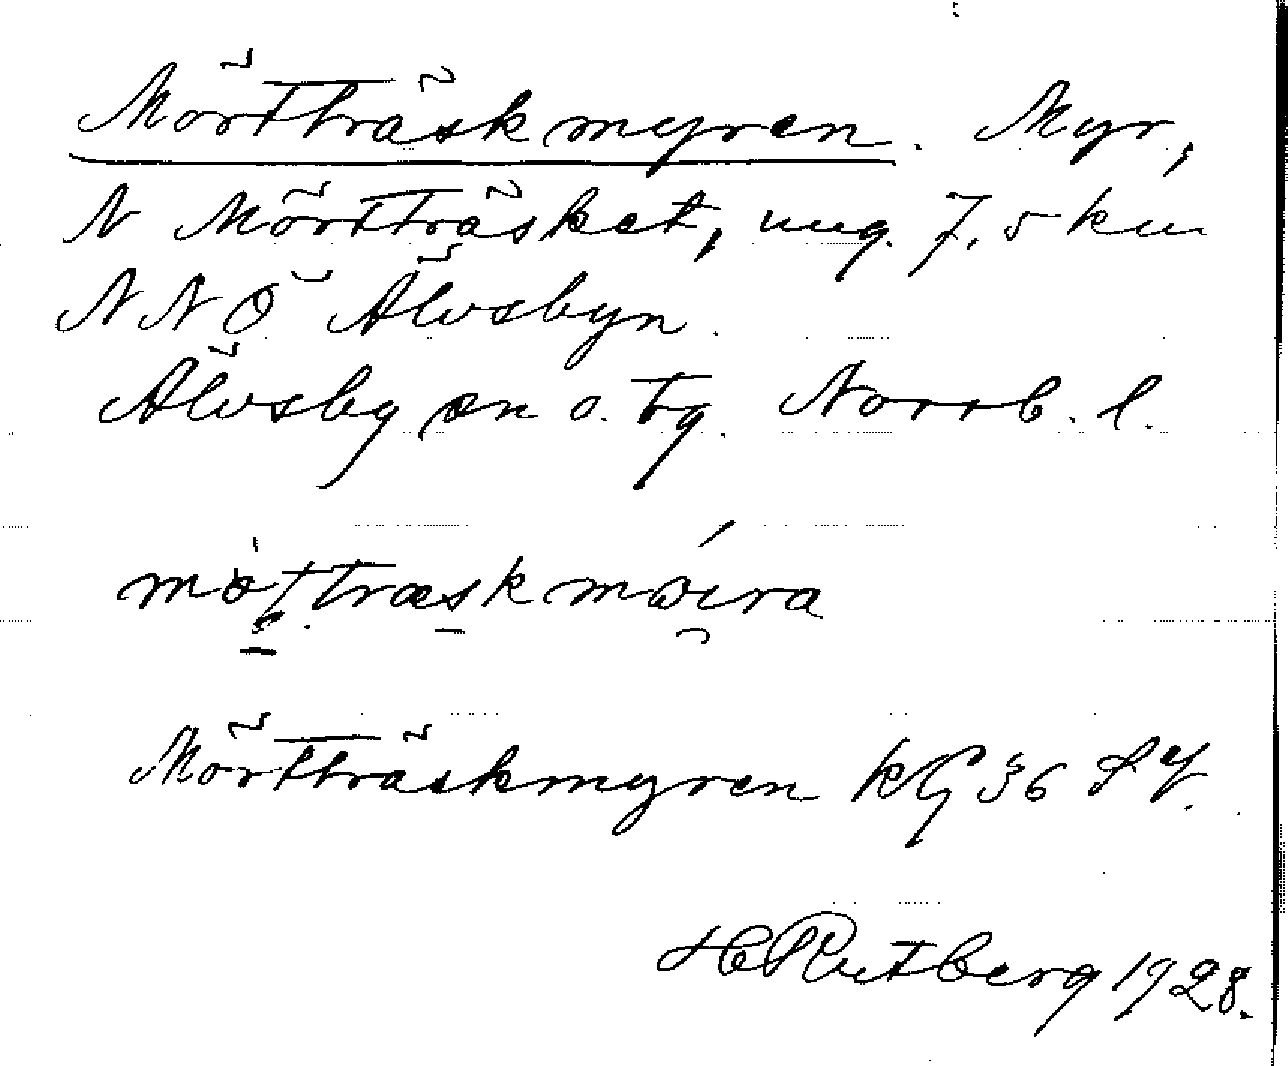 Mörtträskmyren. Myr,
N Mörtträsket, ung. 7,5 km
NNÖ Älvsbyn.
Älvsby sn o. tg. Norrb. l.
Mörtträskmyren KG 36
H Rutberg 1928.